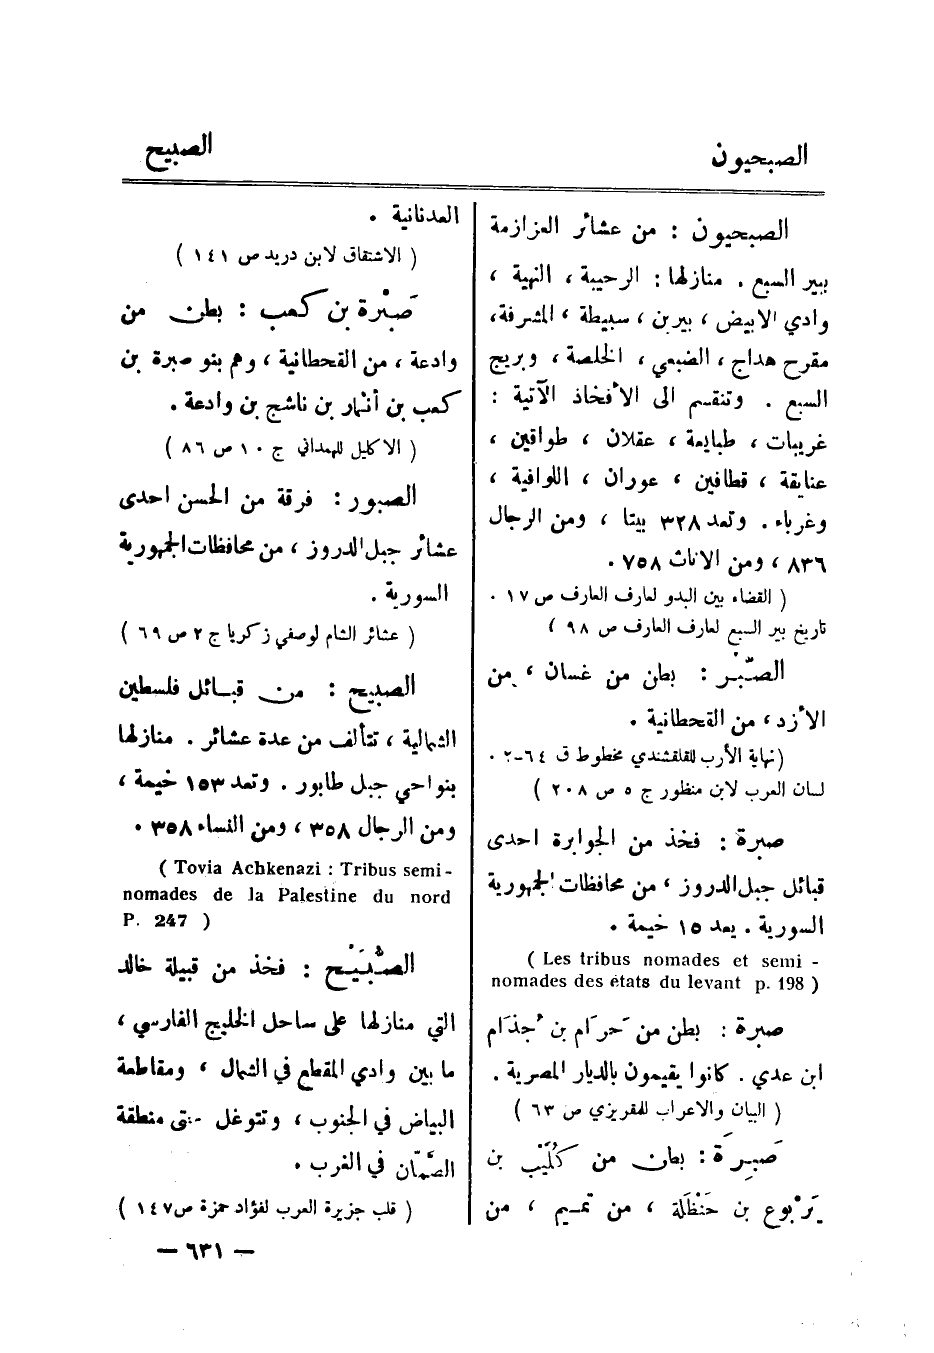 الصبحيون
الصبيح
الصبحيون : من عشائر العزازمة
ببير السبع . منازلها : الرحيبة ، النهية ،
وادي الابيض ، بيرين ، سبيطة ، المشرفة،
مقرح هداج ، الضبعي ، الخلصة ، وبريج
السبع . وتنقسم الى الأفخاذ الآتية :
غريبات ، طبايعة ، عقلان ، طواقين ،
عنابقة ، قطافين ، عوران ، اللوافية ،
وغرباء . وتعد ٣٢٨ بيتا ، ومن الرجال
٨٣٦ ، ومن الاناث ٧٥٨ .
( القضاء بين البدو لعارف العارف ص ١٧ .
تاريخ بير السبع لعارف العارف ص ٩٨ )
الصُّبْر : بطن من غسان ، من
الأزد ، من القحطانية .
(نهاية الأرب للقلقشندي مخطوط ق ٦٤-٢ .
لسان العرب لابن منظور ج ٥ ص ٢٠٨ )
صبرة : فخذ من الجوابرة احدى
قبائل جبل الدروز ، من محافظات الجمهورية
السورية . يعد ١٥ خيمة .
( Les tribus nomades et semi -
nomades des états du levant p. 198 )
صبرة : بطن من حَرَام بن جُذَام
ابن عدي . كانوا يقيمون بالديار المصرية .
( البيان والاعراب للمقريزي ص ٦٣ )
صَبِرَة : بطن من كُلَيْب بن
يَرْبوع بن حَنْظَلة ، من تميم ، من
العدنانية .
( الاشتقاق لابن دريد ص ١٤١ )
صَبْرَة بن كعب : بطن من
وادعة ، من القحطانية ، وهم بنو صبرة بن
كعب بن أنمار بن ناشج بن وادعة .
( الاكليل للهمداني ج ١٠ ص ٨٦ )
الصبور : فرقة من الحسن احدى
عشائر جبل الدروز ، من محافظات الجمهورية
السورية .
( عشائر الشام لوصفي زكريا ج ٢ ص ٦٩ )
الصبيح : من قبائل فلسطين
الشمالية ، تتألف من عدة عشائر . منازلها
بنواحي جبل طابور . وتعد ١٥٣ خيمة ،
ومن الرجال ٣٥٨ ، ومن النساء ٣٥٨ .
( Tovia Achkenazi : Tribus semi-
nomades de la Palestine du nord
P. 247 )
الصُّبَيْح : فخذ من قبيلة خالد
التي منازلها على ساحل الخليج الفارسي ،
ما بين وادي المقطع في الشمال ، ومقاطعة
البياض في الجنوب ، وتتوغل حتى منطقة
الصَّمَّان في الغرب .
( قلب جزيرة العرب لفؤاد حمزة ص ١٤٧ )
— ٦٣١ —